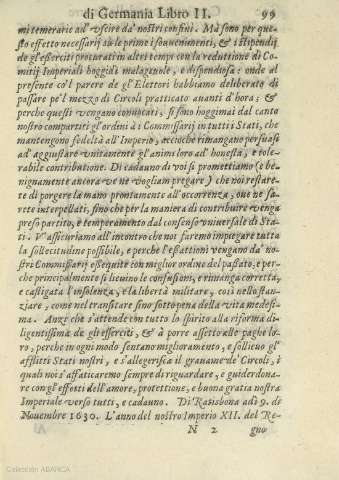 di Germania Libro II. 99
mi temerarie ad' vscire da' nostri confini. Mà sono per que-
sto effetto necessarij sù le prime i souuenimenti, & i stipendij
de gl'esserciti procurati in altri tempi con la reduttione di Com-
itij Imperiali hoggidì malageuole, e dispendiosa: onde al
presente co'l parere de gl'Elettori habbiamo deliberato di
passare pe'l mezzo di Circoli pratticato auanti d'hora; &
perche questi vengano conuocati, si sono hoggimai dal canto
nostro compartiti gl'ordini à i Commissarij in tutti i Stati, che
mantengono fedeltà all'Imperio, accioche rimangan persuasi
ad' aggiustare vnitamente gl'animi loro ad' honesta, e tole-
rabile contributione. Di cadauno di voi si promettiamo (e be-
nignamente ancora ve ne vogliam pregare) che noi restare-
te di porgere la mano prontamente all'occorrenza, oue ne sa-
rete interpellati, sino che per la maniera di contribuire venga
preso partito, e temperamento dal consenso vniuersale de Sta-
ti. V'assicuriamo all'incontro che noi faremo impiegare tutta
la sollecitudine possibile, e perche l'essattioni vengano da' no-
stri Commissarij essequite con miglior ordine del passato, e per-
che principalmente si leuino le confusioni, e rimanga corretta,
e castigata l'insolenza, e la libertà militare, così nello stan-
ziare, come nel transitare sino sotto pena della vita medesi-
ma. Anzi che s'attende con tutto lo spirito alla riforma di-
ligentissima de gli esserciti, & à porre assetto alle paghe lo-
ro, perche in ogni modo sentano miglioramento, e sollieuo gl'
afflitti Stati nostri, e s'allegerisca il grauame de' Circoli, i
quali noi s'affaticaremo sempre di riguardare, e guiderdona-
re con gl'effetti dell'amore, protettione, e buona gratia nostra
Imperiale verso tutti, e cadauno. Di' Ratisbona adì 9. di
Nouembre 1630. L'anno del nostro Imperio XII. del Re-
N 2 gno
Colección ABANCA